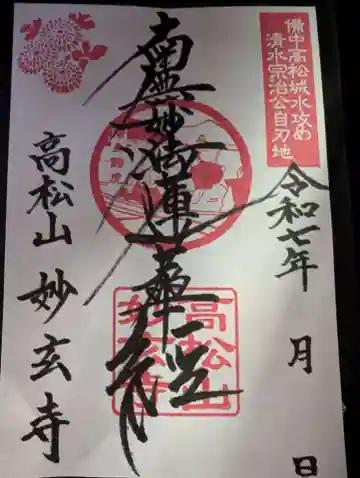 備中高松城水攻め
清水宗治公自刃地
令和七年 月 日
南無妙法蓮華経
高松山 妙玄寺
高松山
妙玄寺